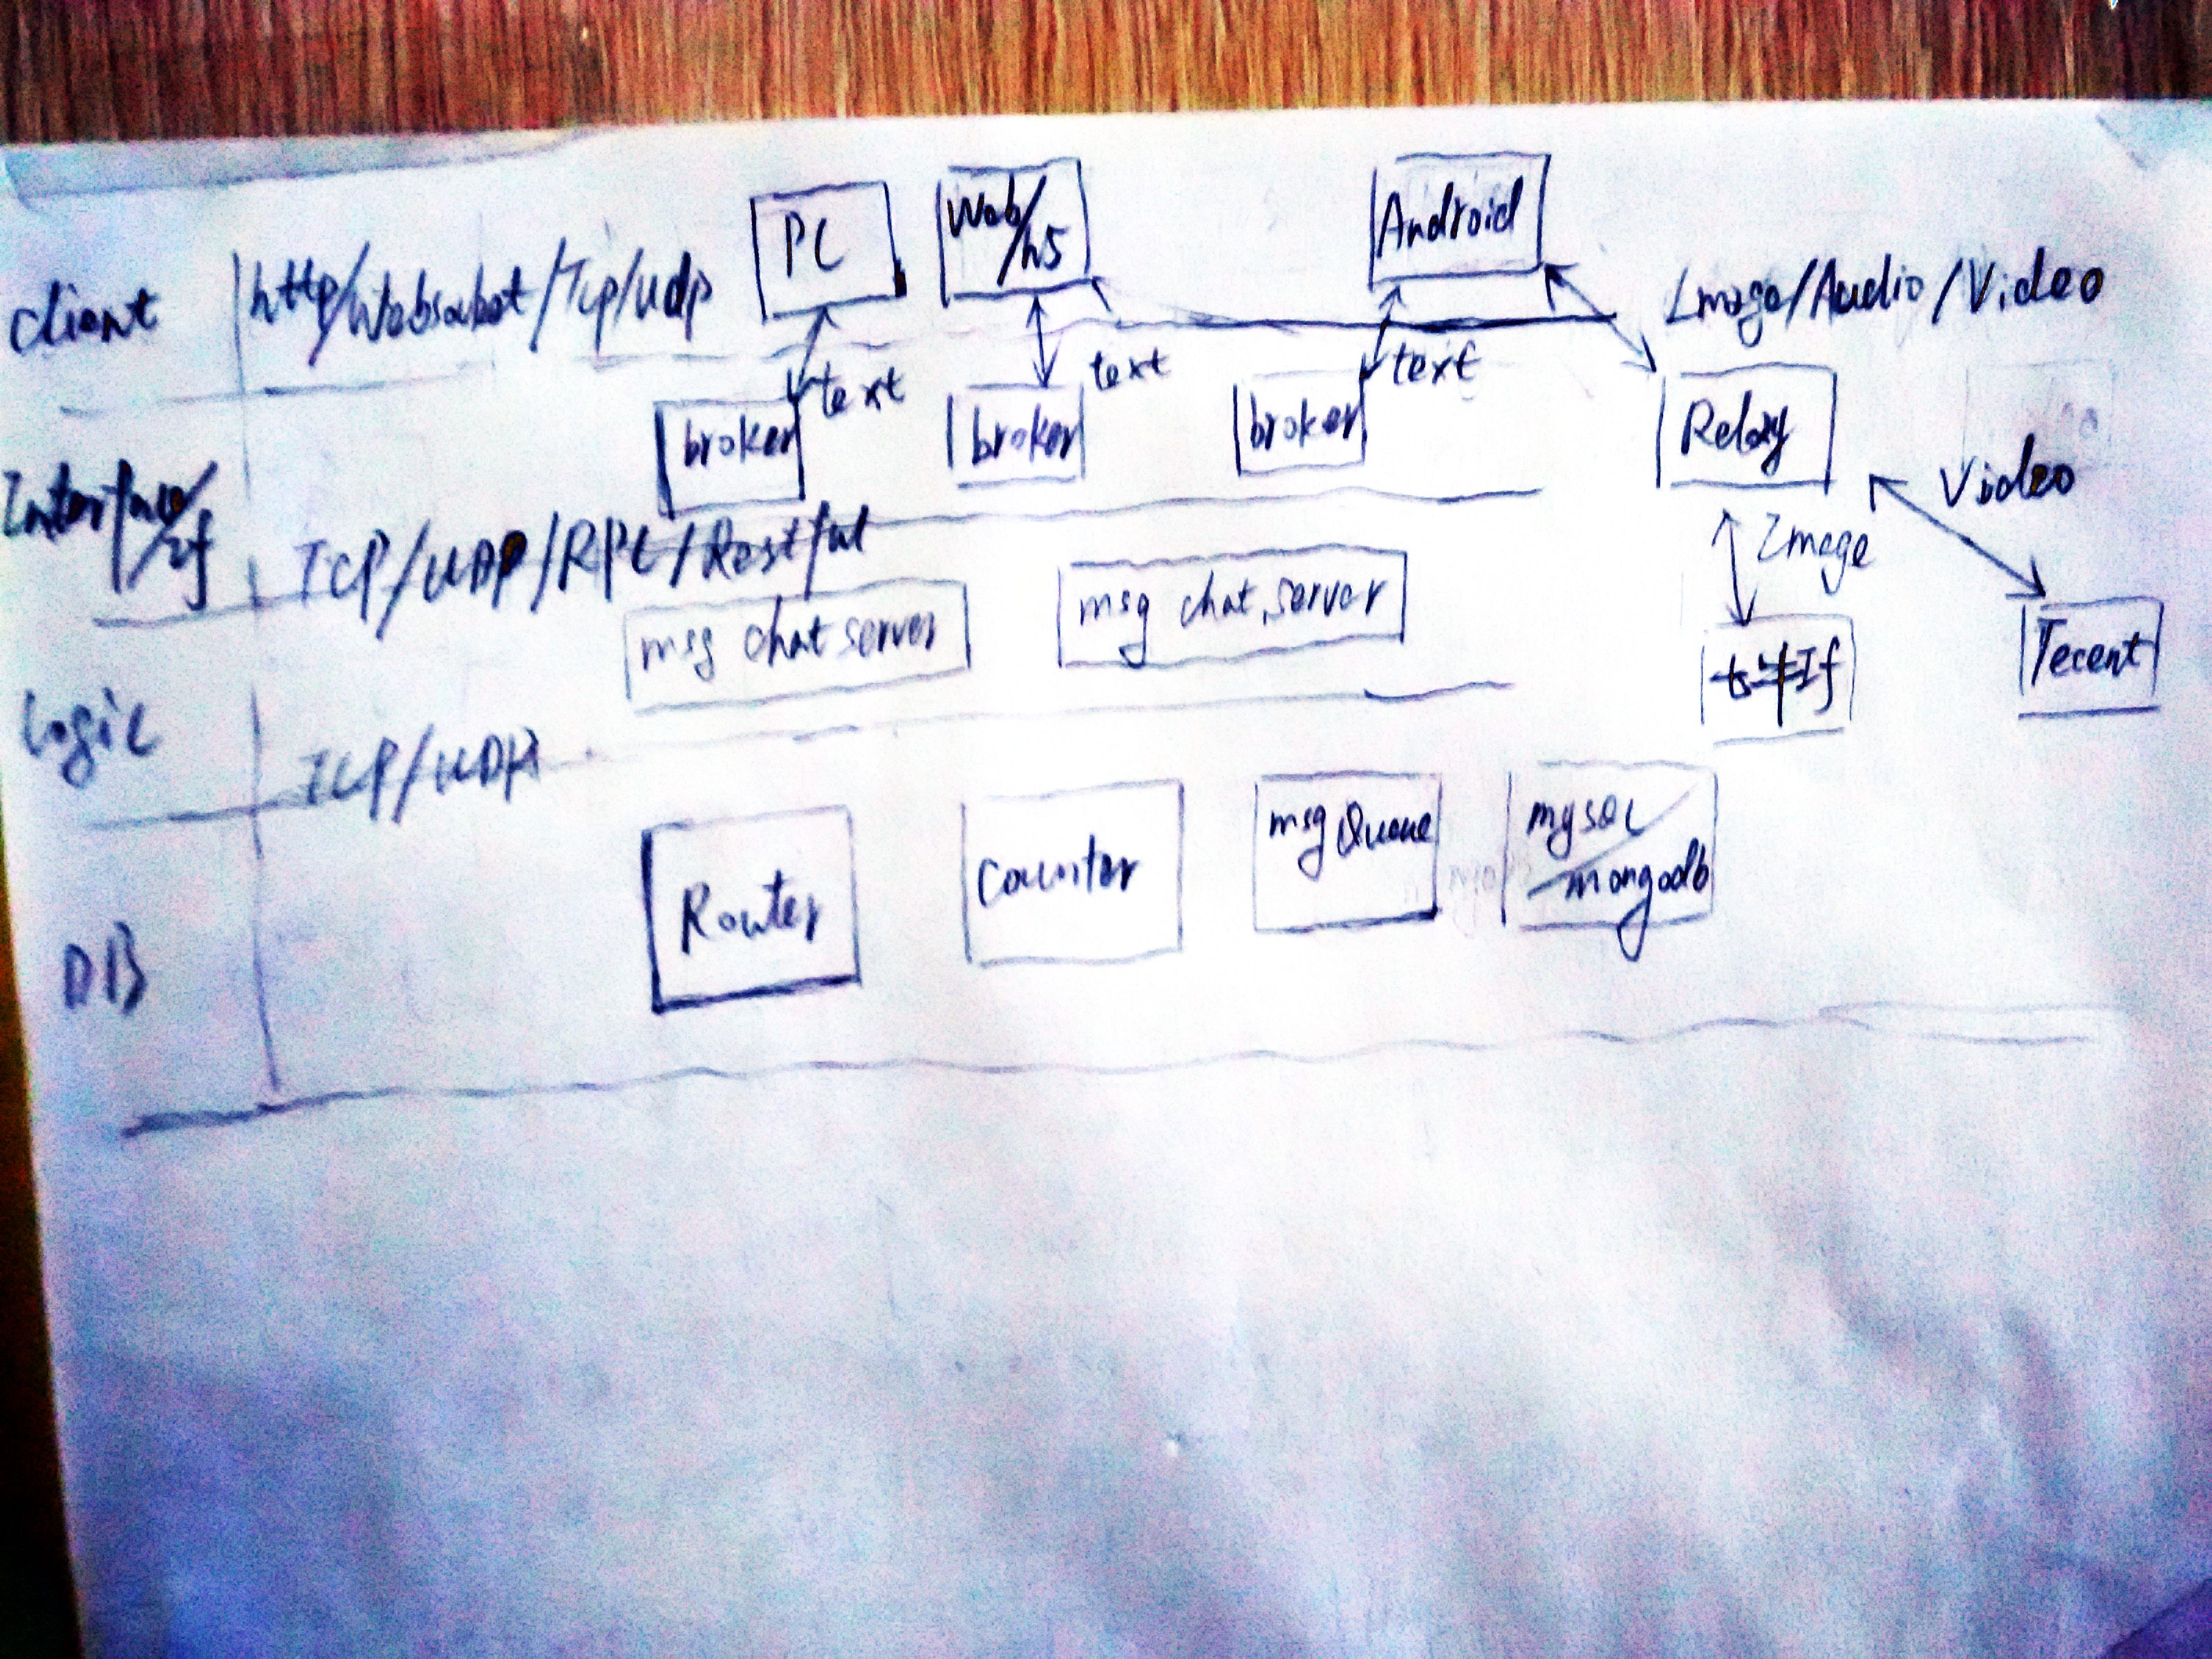 PC
Web/h5
Android
client
http/Websocket/Tcp/udp
Image/Audio/Video
text
text
text
broker
broker
broker
Relay
Interface/if
Video
TCP/UDP/RPC/Restful
Image
msg chat server
msg chat server
Tecent
Logic
TCP/UDP
Router
Counter
msg Queue
mysql/mongodb
DB